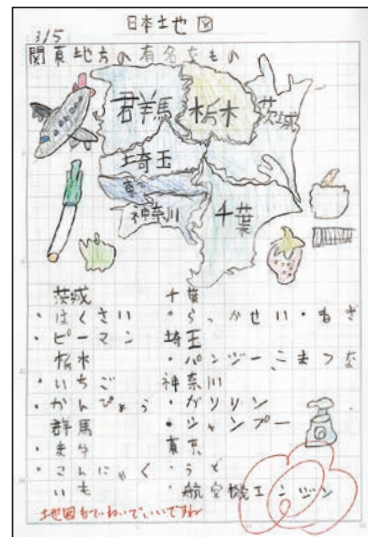 日本土地図
3/5
関東地方の有名なもの
群馬
栃木
茨城
埼玉
東京
神奈川
千葉
茨城
・はくさい
・ピーマン
栃木
・いちご
・かんぴょう
群馬
・まゆ
・こんにゃく
いも
千葉
・らっかせい・ねぎ
埼玉
・パンジー、こまつな
神奈川
・ガソリン
・シャンプー
東京
・うど
・航空機エンジン
地図もていねいでいいですね